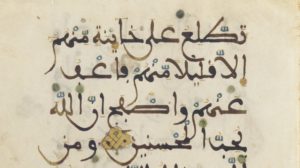 تَطَّلِعُ عَلَىٰ خَائِنَةٍ مِنْهُمْ
إِلَّا قَلِيلًا مِنْهُمْ فَاعْفُ
عَنْهُمْ وَاصْفَحْ إِنَّ اللَّهَ
يُحِبُّ الْمُحْسِنِينَ وَمِنَ